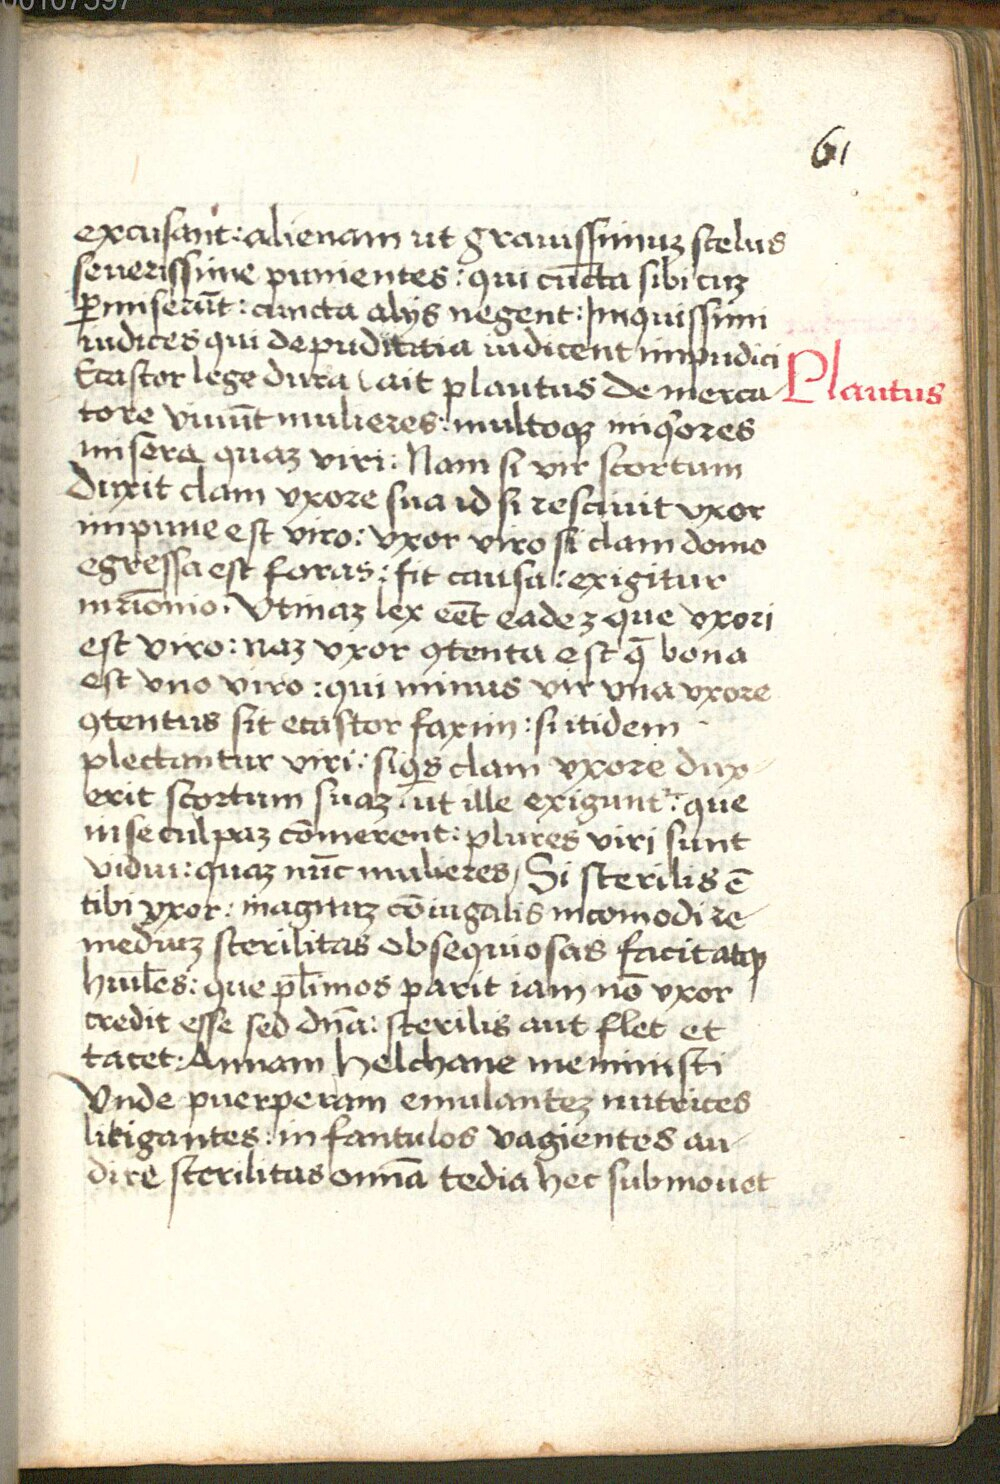 00107597
61
excusant: alienam ut grauissimuz scelus
seuerissime punientes: qui cūcta sibi cuz
p̄miserūt: cuncta alijs negent: Iniquissimi
iudices qui de pudicitia iudicent impudici
Ecastor lege dura ait plautus de merca
Plautus
tore viuūt mulieres: multoqꝫ iniq̇ores
misera quaz viri: Nam si vir scortum
Duxit clam vxore sua id si resciuit vxor
impune est viro: vxor viro si clam domo
egressa est foras: fit causa: exigitur
mr̄iōnio. Vtinaz lex eēt eadez que vxori
est viro: naz vxor ꝯtenta est q̄ bona
est vno viro: qui minus vir vna vxore
ꝯtentus sit ecastor faxim: si itidem
plectantur viri: siq̇s clam vxore dux-
erit scortum suaz: ut ille exigunt᷑: que
in se culpaz cōmerent: plures viri sunt
vidui: quaz nūc mulieres / Si sterilis ē
tibi vxor: magnuz cōiugalis incomodi re-
mediuz sterilitas obsequiosas facit atqꝫ
huīles: que pl̄imos parit iam nō vxor
credit esse sed dn̄a: sterilis aut flet et
tacet: Annam helchane meministi
Vnde puerperam emulantez nutrices
litigantes: infantulos vagientes au-
dire sterilitas omīa tedia hec submouet